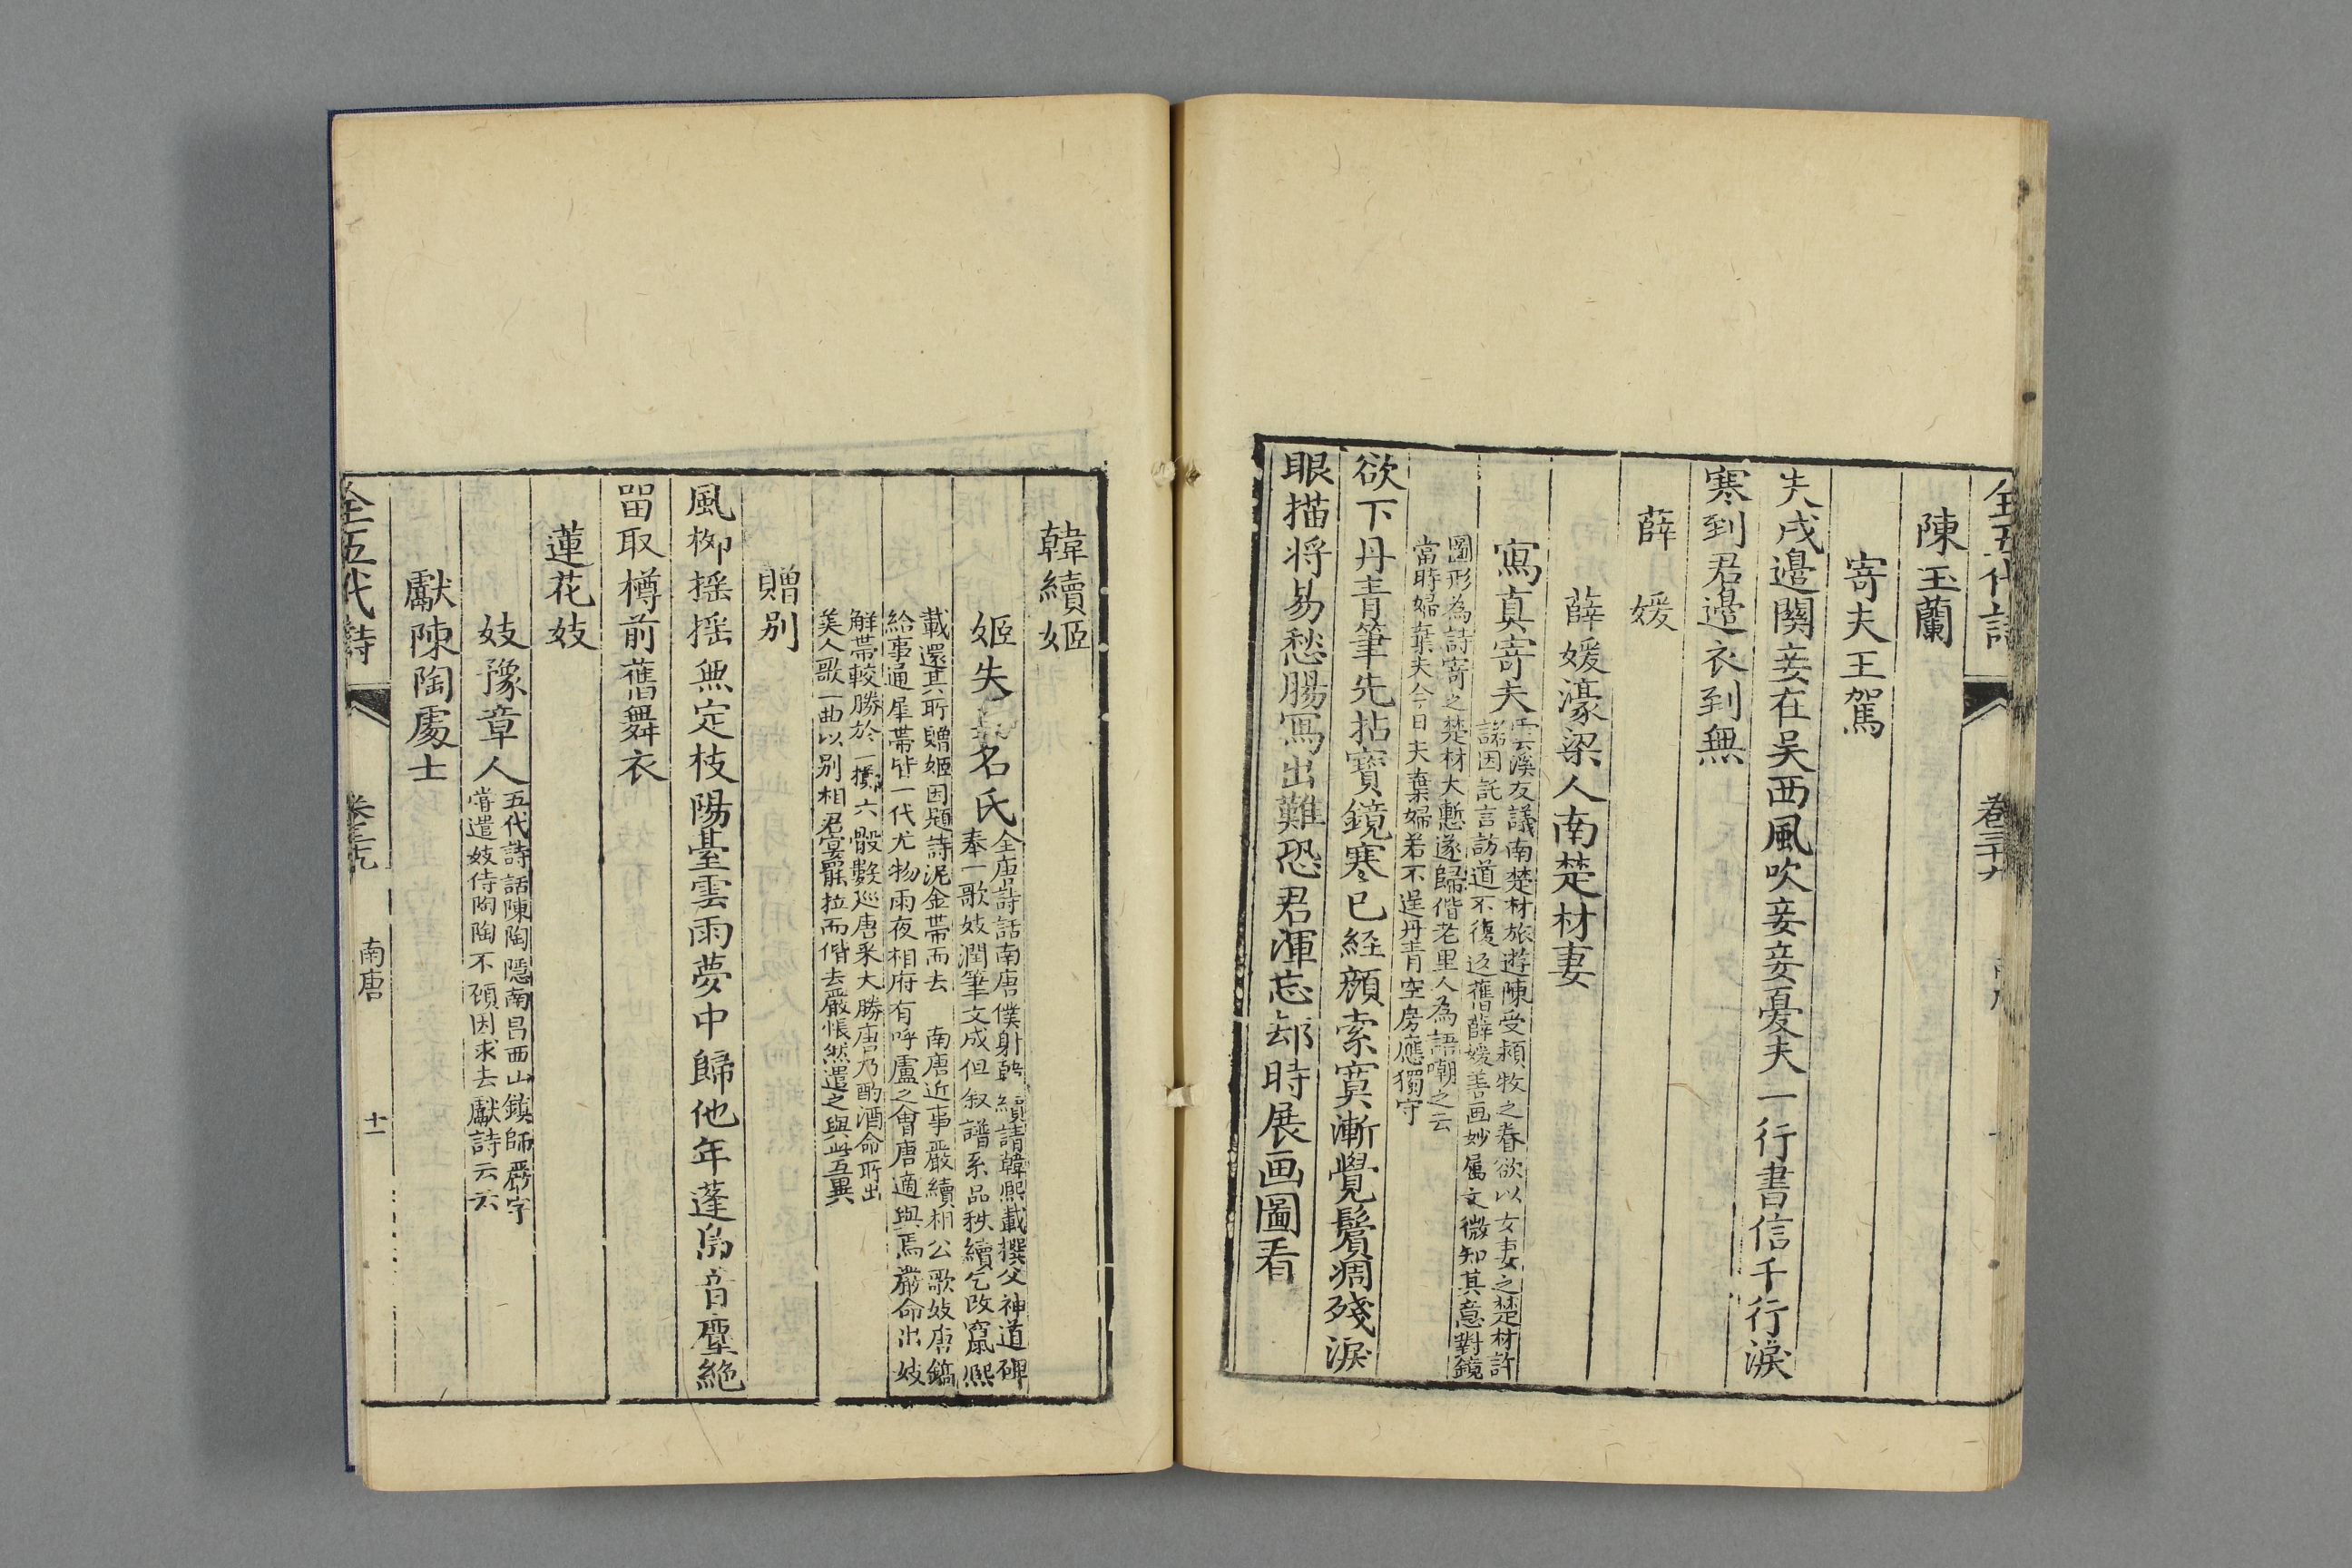 全五代詩
卷三十九
陳玉蘭
寄夫王駕
夫戍邊關妾在吴西風吹妾妾憂夫一行書信千行淚
寒到君邊衣到無
薛媛
薛媛濠梁人南楚材妻
寫真寄夫
雲溪友議南楚材旅遊陳受潁牧之眷欲以女妻之楚材許
諾因託言訪道不復返舊薛媛善画妙属文微知其意對鏡
圖形為詩寄之楚材大慙遂歸偕老里人為語嘲之云
當時婦棄夫今日夫棄婦若不逞丹青空房應獨守
欲下丹青筆先拈寶鏡寒已経顔索寞漸覺鬢凋殘淚
眼描将易愁腸寫出難恐君渾忘却時展画圖看
韓續姬
姬失名氏
全唐詩話南唐僕射韓續請韓熙載撰父神道碑
奉一歌妓潤筆文成但叙譜系品秩續乞改竄熙
載還其所贈姬因題詩泥金帶而去 南唐近事嚴續相公歌妓唐鎬
給事通犀帶皆一代尤物雨夜相府有呼盧之會唐適與焉嚴命出妓
解帶較勝於一擲六骰數巡唐采大勝唐乃酌酒命所出
美人歌一曲以别相君宴罷拉而偕去嚴悵然遣之與此互異
贈别
風柳摇摇無定枝陽臺雲雨夢中歸他年蓬島音塵絶
留取樽前舊舞衣
蓮花妓
妓豫章人
五代詩話陳陶隱南昌西山鎮師嚴宇
嘗遣妓侍陶陶不顧因求去獻詩云云
獻陳陶處士
全五代詩
卷三十九
南唐
十一